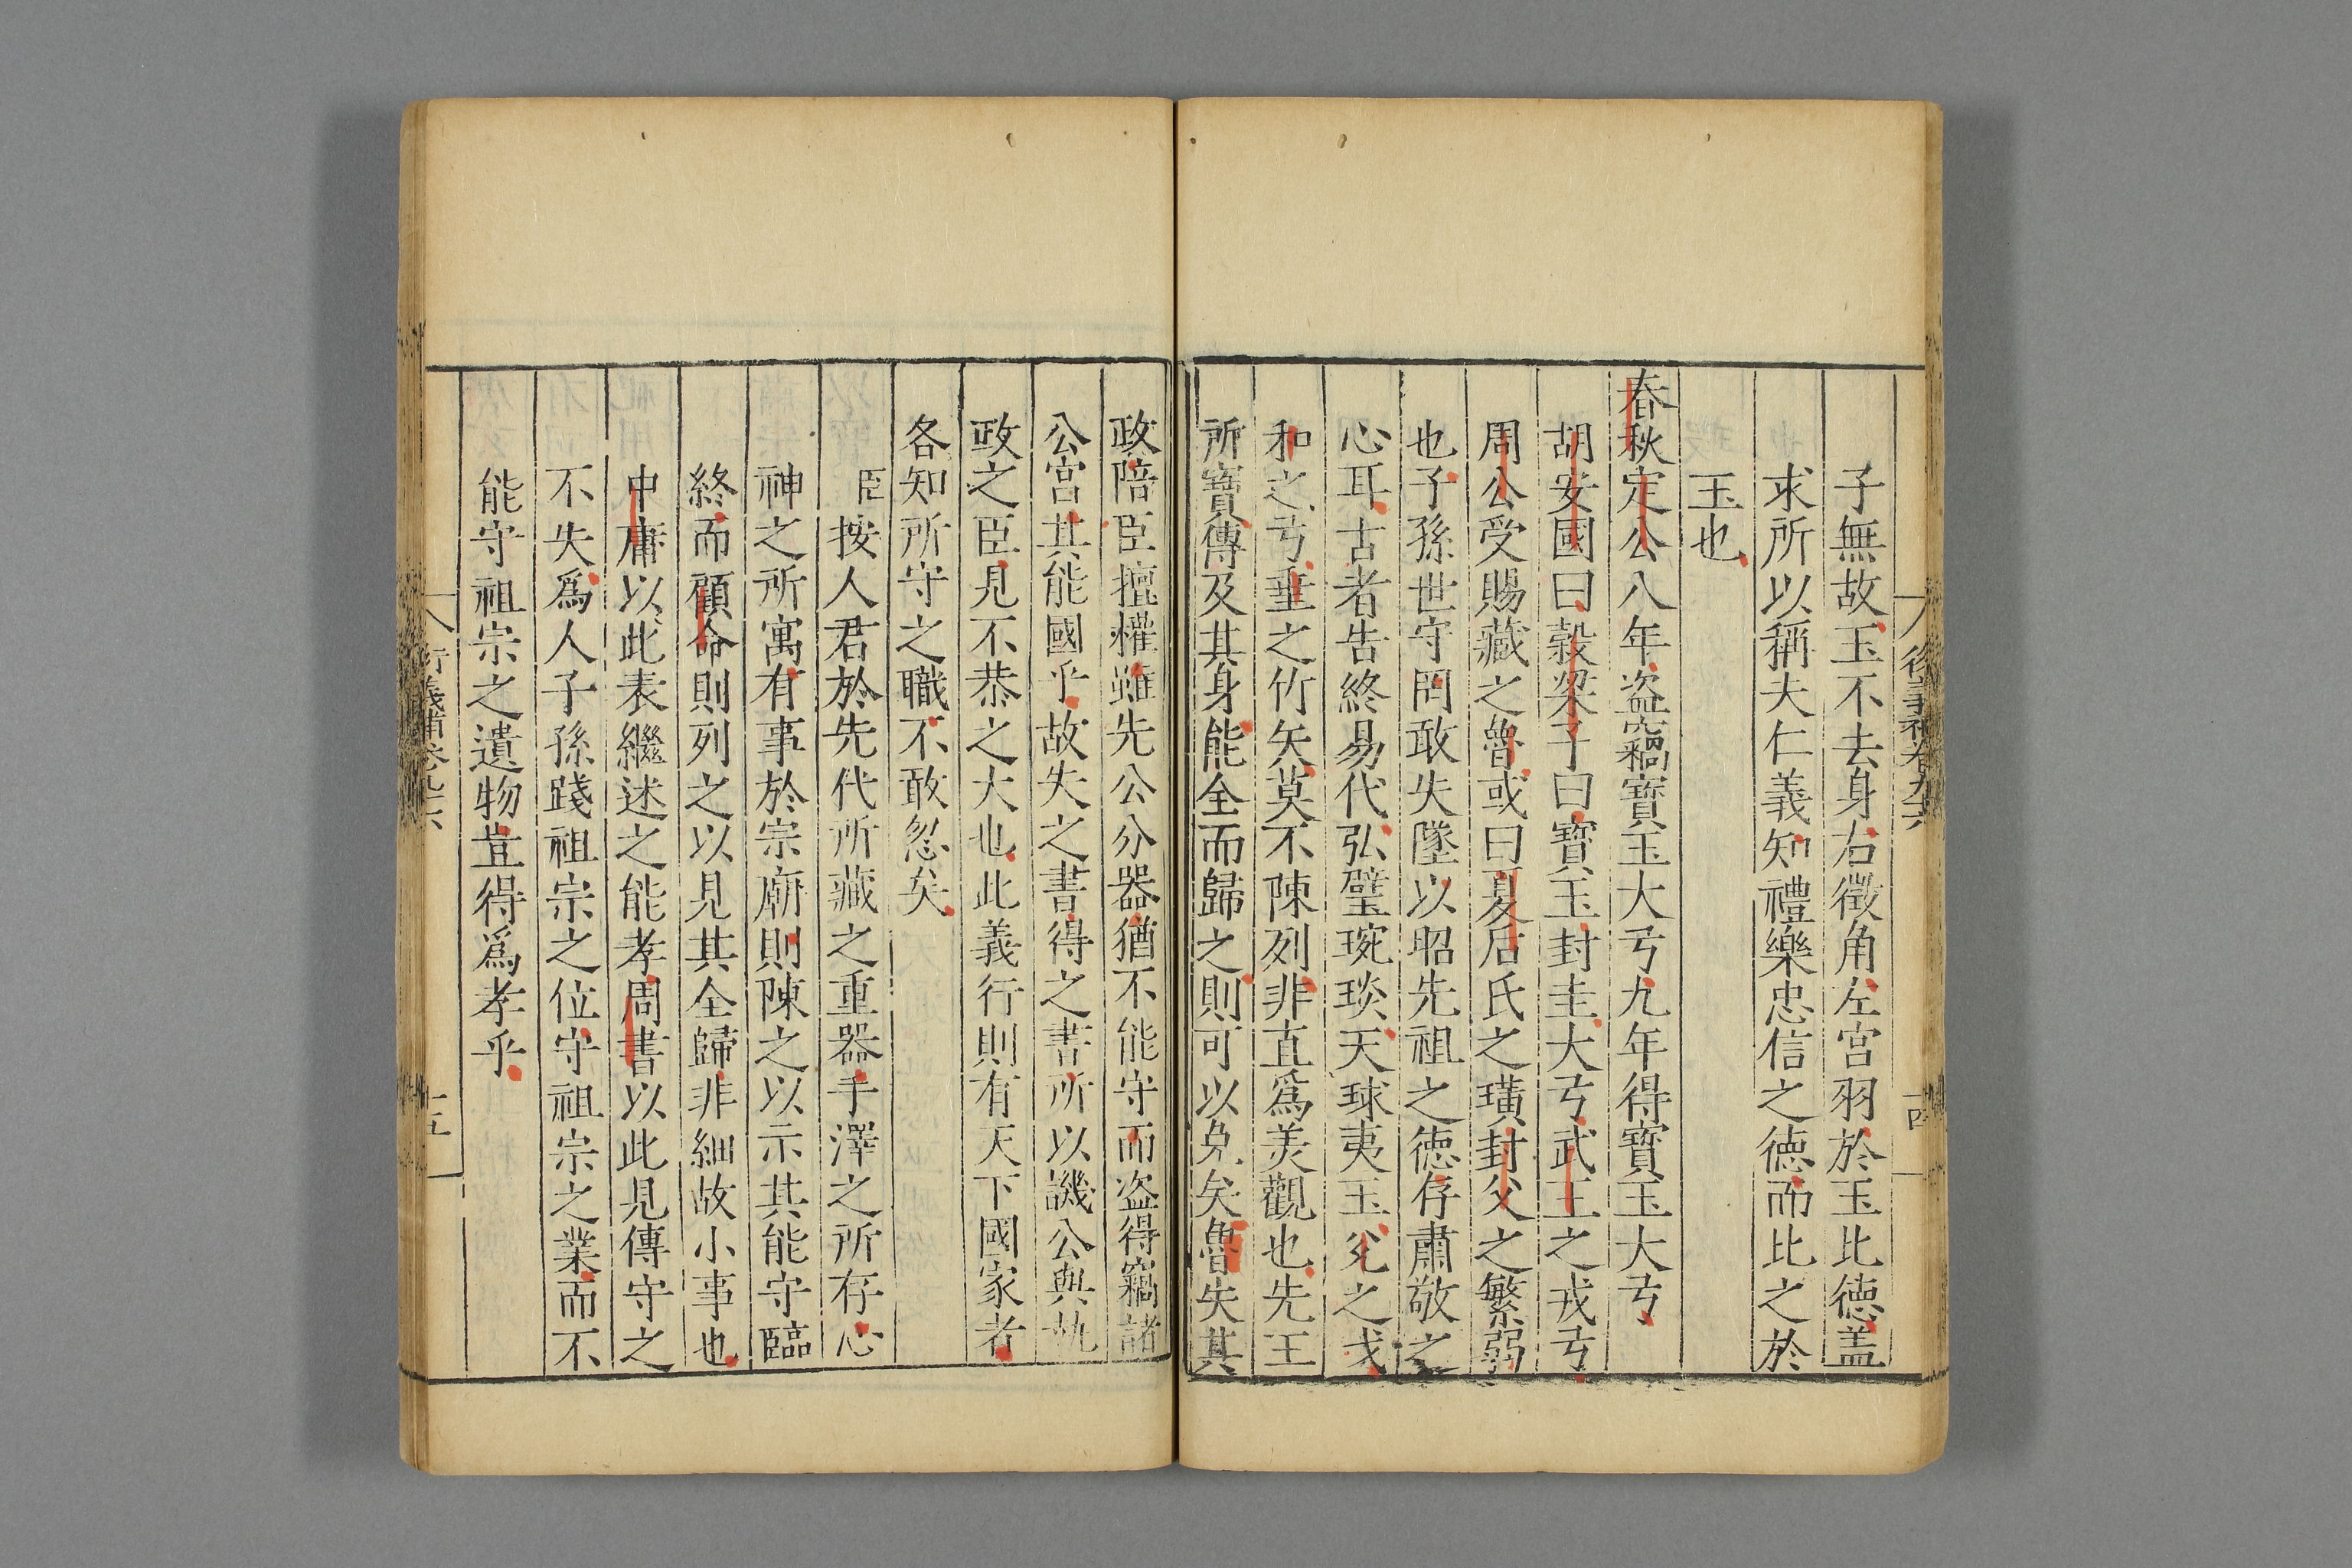 子無故玉不去身右徵角左宮羽於玉比德盖
求所以稱夫仁義知禮樂忠信之德而比之於
玉也
春秋定公八年盗竊寶玉大弓九年得寶玉大弓
胡安國曰穀梁子曰寶玉封圭大弓武王之戎弓
周公受賜藏之魯或曰夏后氏之璜封父之繁弱
也子孫世守罔敢失墜以昭先祖之德存肅敬之
心耳古者告終易代弘璧琬琰天球夷玉兊之戈
和之弓垂之竹矢莫不陳列非直爲美觀也先王
所寶傳及其身能全而歸之則可以免矣魯失其
政陪臣擅權雖先公分器猶不能守而盗得竊諸
公宮其能國乎故失之書得之書所以譏公與執
政之臣見不恭之大也此義行則有天下國家者
各知所守之職不敢忽矣
臣按人君於先代所藏之重器手澤之所存心
神之所寓有事於宗廟則陳之以示其能守臨
終而顧命則列之以見其全歸非細故小事也
中庸以此表繼述之能孝周書以此見傳守之
不失爲人子孫踐祖宗之位守祖宗之業而不
能守祖宗之遺物豈得爲孝乎